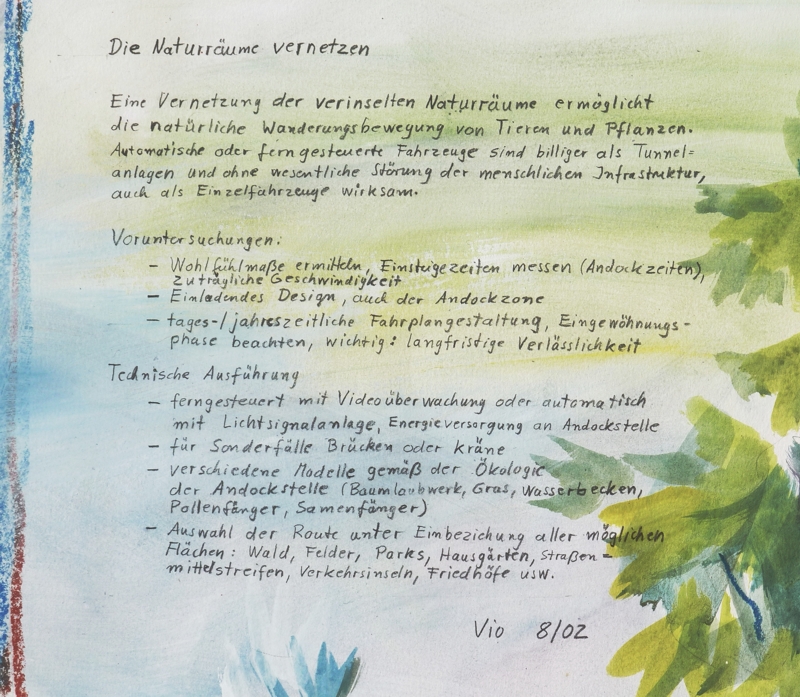 Die Naturräume vernetzen
Eine Vernetzung der verinselten Naturräume ermöglicht
die natürliche Wanderungsbewegung von Tieren und Pflanzen.
Automatische oder ferngesteuerte Fahrzeuge sind billiger als Tunnel=
anlagen und ohne wesentliche Störung der menschlichen Infrastruktur,
auch als Einzelfahrzeuge wirksam.
Voruntersuchungen:
– Wohlfühlmaße ermitteln, Einsteigezeiten messen (Andockzeiten),
zuträgliche Geschwindigkeit
– Einladendes Design, auch der Andockzone
– tages-/jahreszeitliche Fahrplangestaltung, Eingewöhnungs-
phase beachten, wichtig: langfristige Verlässlichkeit
Technische Ausführung
– ferngesteuert mit Videoüberwachung oder automatisch
mit Lichtsignalanlage, Energieversorgung an Andockstelle
– für Sonderfälle Brücken oder kräne
– verschiedene Modelle gemäß der Ökologie
der Andockstelle (Baumlaubwerk, Gras, Wasserbecken,
Pollenfänger, Samenfänger)
– Auswahl der Route unter Einbeziehung aller möglichen
Flächen: Wald, Felder, Parks, Hausgärten, Straßen=
mittelstreifen, Verkehrsinseln, Friedhöfe usw.
Vio 8/02